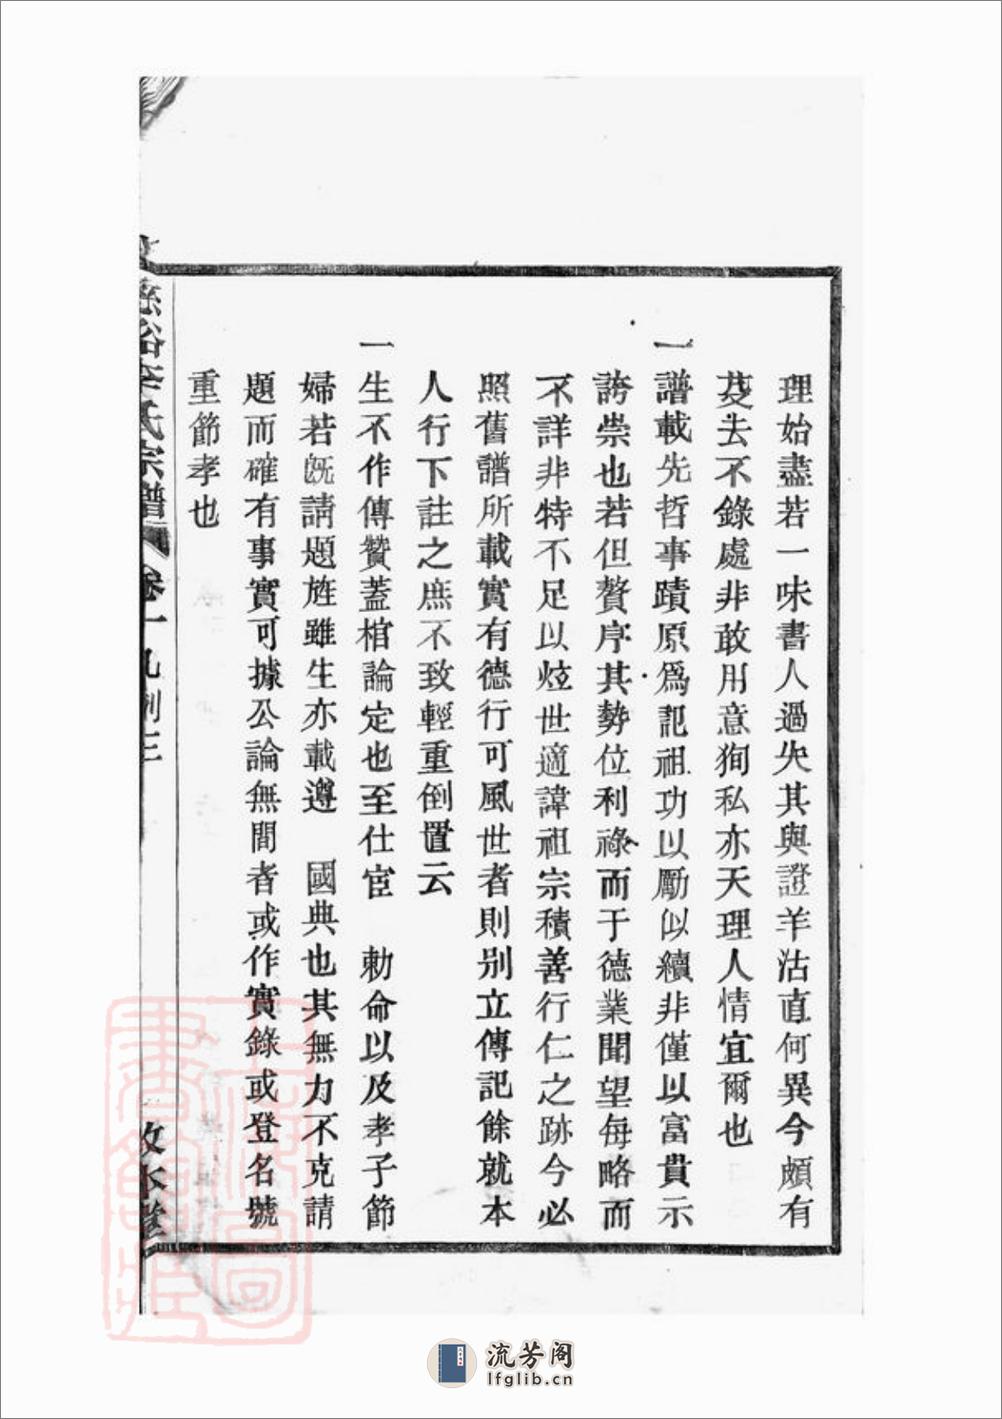 理始盡若一味書人過失其與證羊沽直何異今頗有
芟去不錄處非敢用意狥私亦天理人情宜爾也
一譜載先哲事蹟原爲記祖功以勵似續非僅以富貴示
誇崇也若但贅序其勢位利祿而于德業聞望每略而
不詳非特不足以炫世適諱祖宗積善行仁之跡今必
照舊譜所載實有德行可風世者則别立傳記餘就本
人行下註之庶不致輕重倒置云
一生不作傳贊蓋棺論定也至仕宦 勅命以及孝子節
婦若既請題旌雖生亦載遵 國典也其無力不克請
題而確有事實可據公論無間者或作實錄或登名號
重節孝也
李氏宗譜 卷一 凡例 三
敦本堂
流芳阁
lfglib.cn